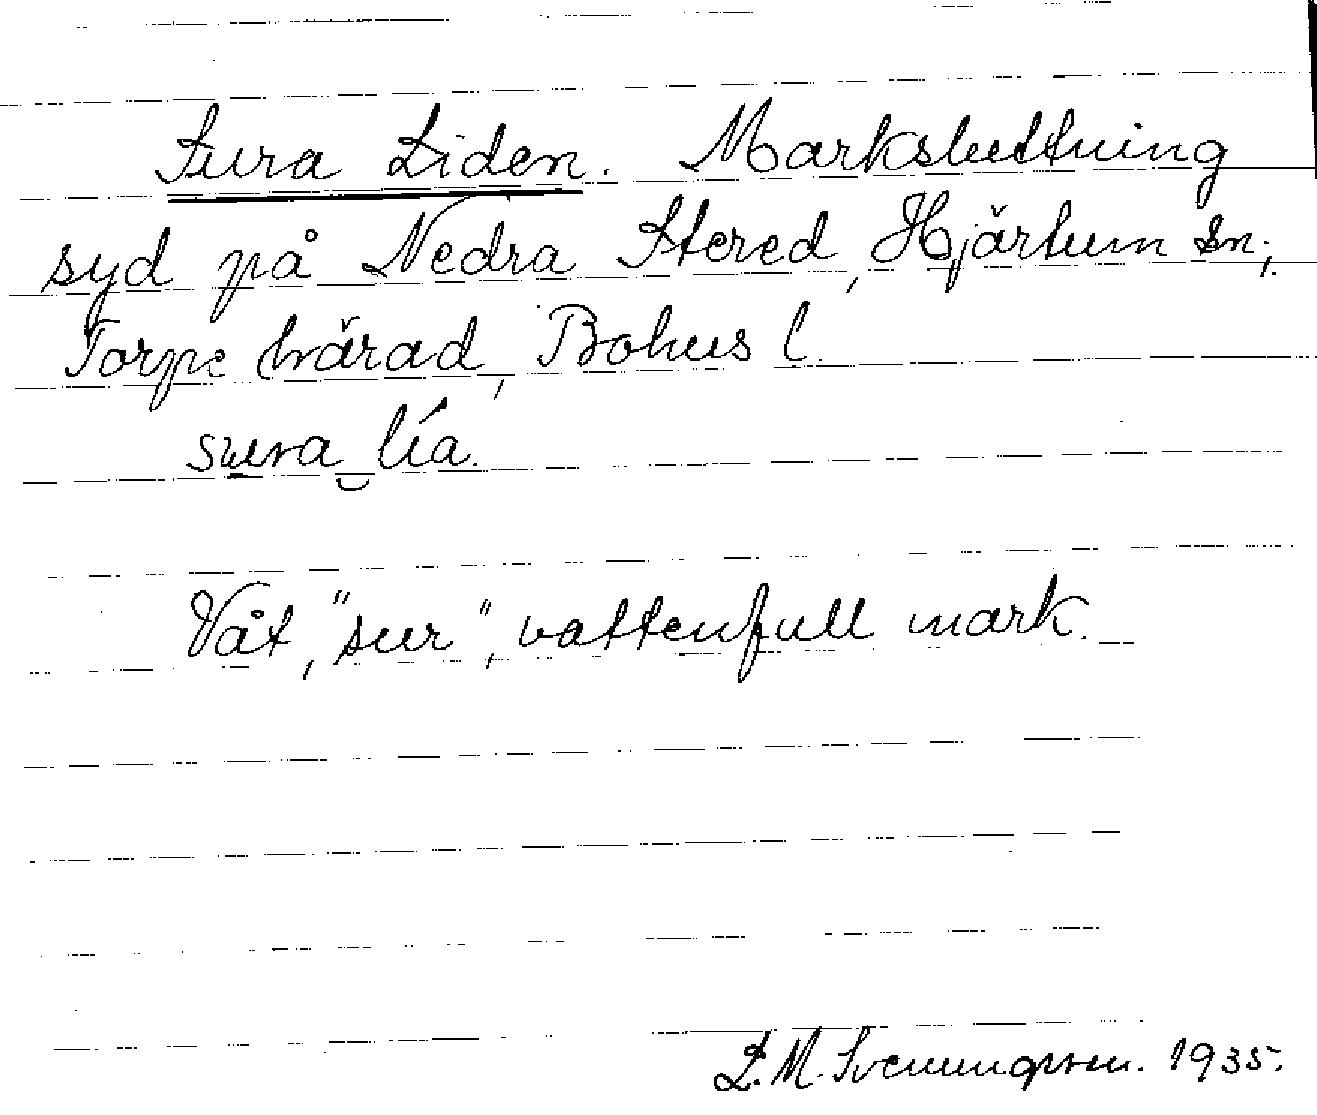 Sura Liden. Marksluttning
syd på Nedra Stered, Hjärtum sn;
Torpe härad, Bohus l.
sura lía.
Våt, "sur", vattenfull mark.
L. M. Svenungsson. 1935.